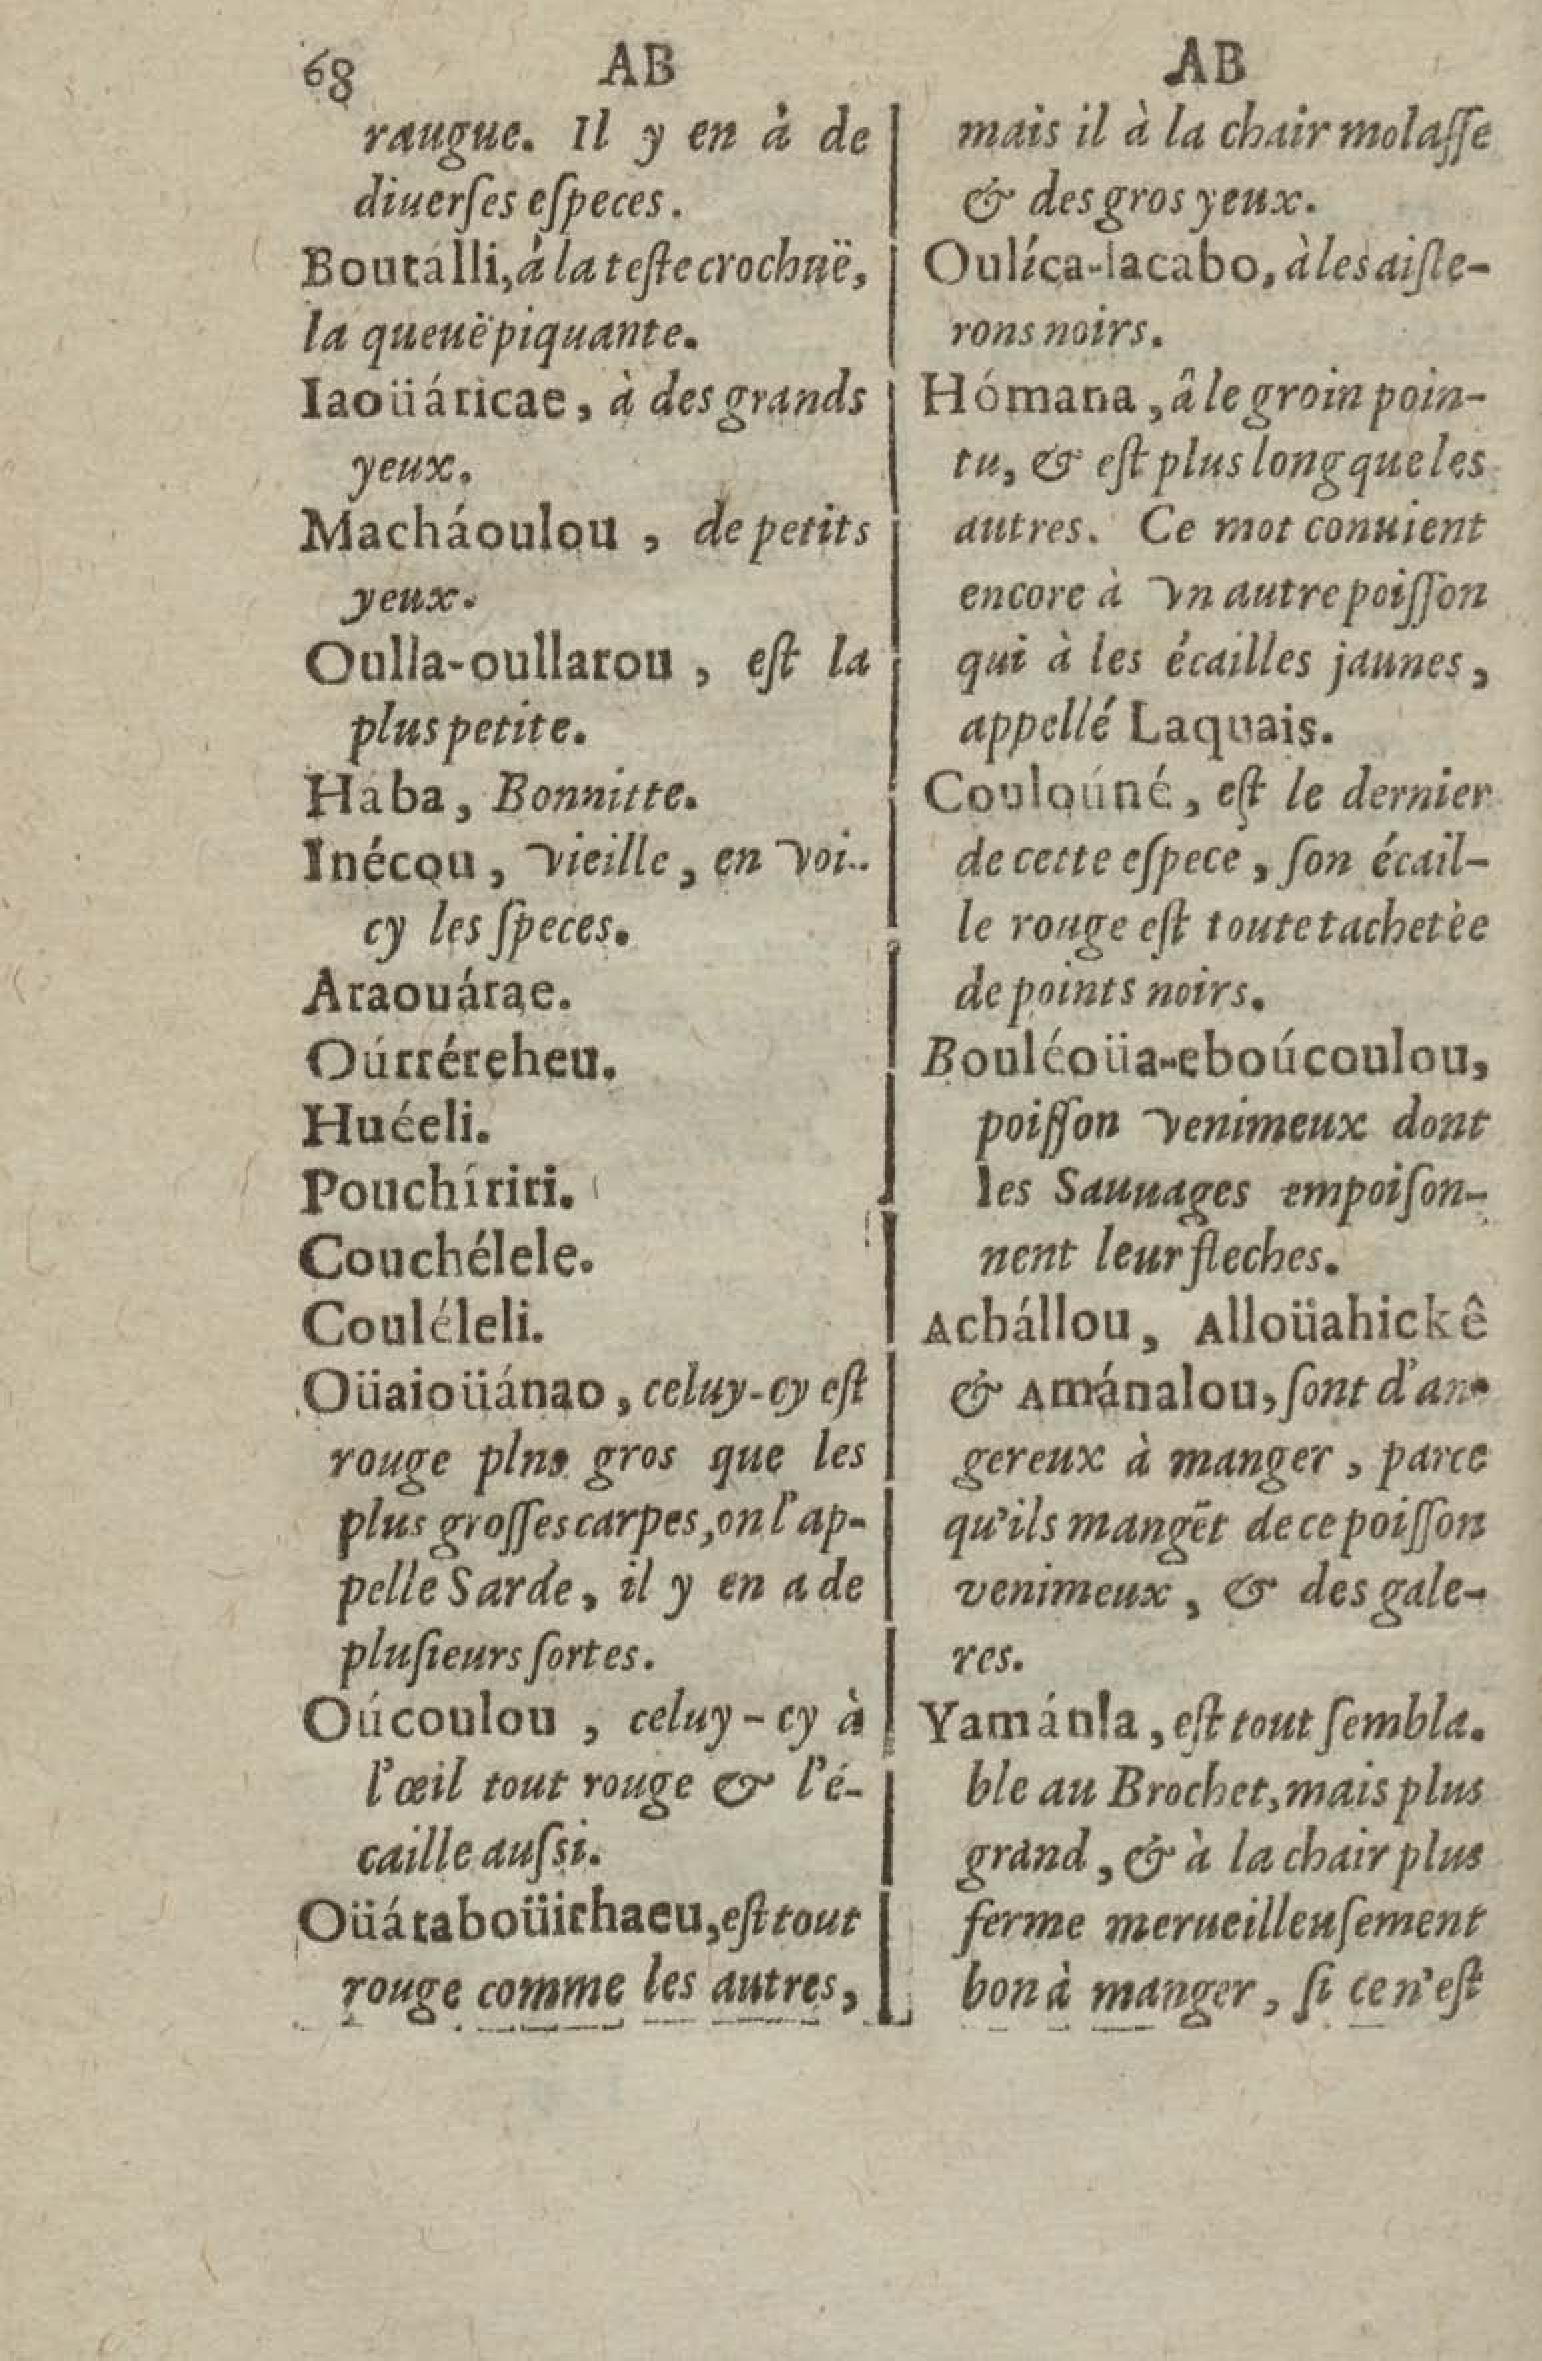 68 AB AB
raugue. Il y en à de
diuerſes eſpeces.
Boutálli, à la teſte crochuë,
la queuë piquante.
Iaoüáticae, à des grands
yeux.
Macháoulou, de petits
yeux.
Oulla-oullarou, eſt la
plus petite.
Haba, Bonnitte.
Inécou, vieille, en voi-
cy les ſpeces.
Araouárae.
Oúrréreheu.
Huéeli.
Pouchíriri.
Couchélele.
Couléleli.
Oüaioüánao, celuy-cy eſt
rouge plns gros que les
plus groſſes carpes, on l'ap-
pelle Sarde, il y en a de
pluſieurs ſortes.
Oúcoulou, celuy-cy à
l'œil tout rouge & l'é-
caille auſsi.
Oüátaboüichaeu, eſt tout
rouge comme les autres,
mais il à la chair molaſſe
& des gros yeux.
Oulíca-lacabo, à les aiſle-
rons noirs.
Hómana, â le groin poin-
tu, & eſt plus long que les
autres. Ce mot conuient
encore à vn autre poiſſon
qui à les écailles jaunes,
appellé Laquais.
Couloúné, eſt le dernier
de cette eſpece, ſon écail-
le rouge eſt toute tachetèe
de points noirs.
Bouléoüa-eboúcoulou,
poiſſon venimeux dont
les Sauuages empoiſon-
nent leur fleches.
Acbállou, Alloüahickê
& Amánalou, ſont d'an-
gereux à manger, parce
qu'ils mangēt de ce poiſſon
venimeux, & des gale-
res.
Yamánla, eſt tout ſembla.
ble au Brochet, mais plus
grand, & à la chair plus
ferme merueilleuſement
bon à manger, ſi ce n'eſt